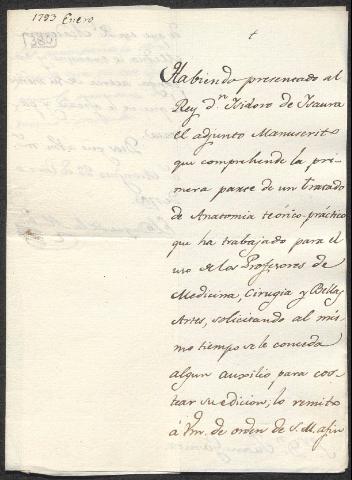 1793 Enero
Habiendo presentado al
Rey d.n Isidoro de Isaura
el adjunto Manuscrito
que comprehende la pri-
mera parte de un tratado
de Anatomia teórico-práctico
que ha trabajado para el
uso de los Profesores de
Medicina, Cirugia y Bellas
Artes, solicitando al mis-
mo tiempo se le conceda
algun auxilio para cos-
tear su edicion; lo remito
á Vm. de orden de S. M. afin